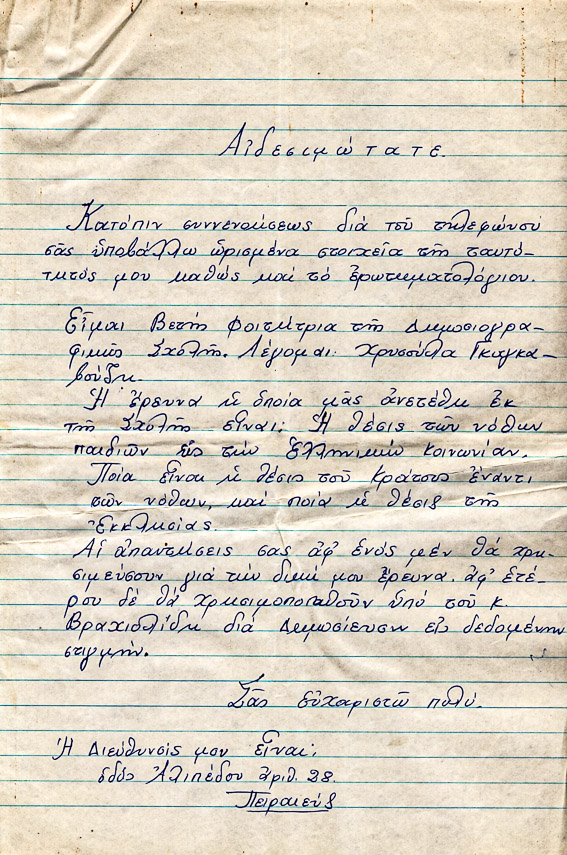 Αἰδεσιμώτατε.
Κατόπιν συννενοήσεως διά τοῦ τηλεφώνου
σᾶς ὑποβάλλω ὡρισμένα στοιχεῖα τῆς ταυτό-
τητός μου καθὼς καί τό ἐρωτηματολόγιον.
Εἶμαι Βετής φοιτήτρια τῆς Δημοσιογρα-
φικῆς Σχολῆς. Λέγομαι: Χρυσούλα Γκαγκα-
βούζη.
Ἡ ἔρευνα ἡ ὁποία μᾶς ἀνετέθη ἐκ
τῆς Σχολῆς εἶναι: Ἡ θέσις τῶν νόθων
παιδιῶν εἰς τήν Ἑλληνικήν κοινωνίαν.
Ποία εἶναι ἡ θέσις τοῦ Κράτους ἔναντι
τῶν νόθων, καί ποία ἡ θέσις τῆς
Ἐκκλησίας.
Αἱ ἀπαντήσεις σας ἀφ' ἑνός μέν θά χρη-
σιμεύσουν γιά τήν δική μου ἔρευνα. ἀφ' ἑτέ-
ρου δέ θά χρησιμοποιηθοῦν ὑπό τοῦ κ
Βραχιολίδη διά Δημοσίευσην εἰς δεδομένην
στιγμήν.
Σᾶς εὐχαριστῶ πολύ.
Ἡ Διεύθυνσίς μου Εἶναι:
ὁδός Ἁλιπέδου ἀριθ. 28.
Πειραιεύς